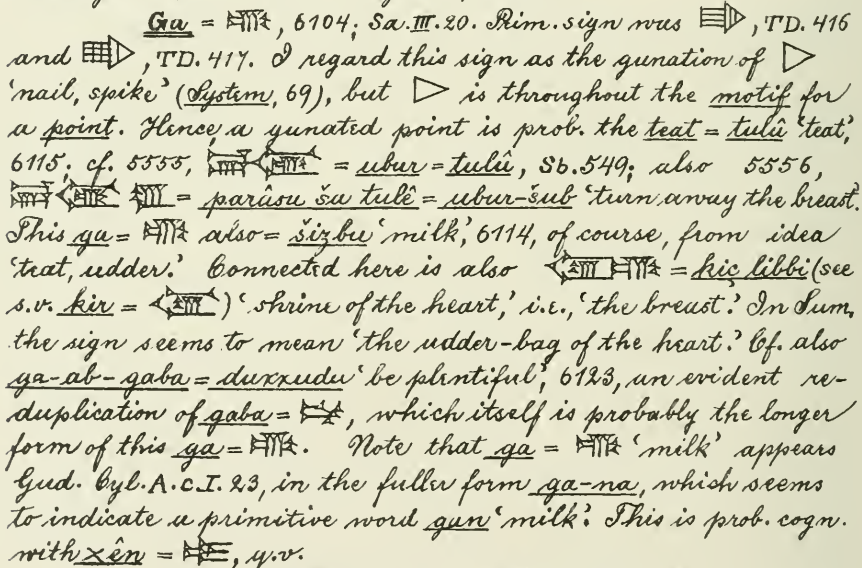 Ga = 𒂵, 6104; Sa. III. 20. Prim. sign was , TD. 416
and , TD. 417. I regard this sign as the gunation of ▷
‘nail, spike’ (System, 69), but ▷ is throughout the motif for
a point. Hence a gunated point is prob. the teat = tulû ‘teat’,
6115; cf. 5555, = ubur = tulû, Sb. 549; also 5556,
= parâsu ša tulê = ubur-šub ‘turn away the breast.’
This ga = also = šizbu ‘milk’, 6114, of course, from idea
‘teat, udder.’ Connected here is also = kic libbi (see
s.v. kir = ) ‘shrine of the heart,’ i.e., ‘the breast.’ In Sum.
the sign seems to mean ‘the udder-bag of the heart.’ Cf. also
ga-ab-gaba = duxxudu ‘be plentiful’, 6123, an evident re-
duplication of gaba = , which itself is probably the longer
form of this ga = . Note that ga = ‘milk’ appears
Gud. Cyl. A. c. I. 23, in the fuller form ga-na, which seems
to indicate a primitive word gan ‘milk’. This is prob. cogn.
with xên = , q.v.